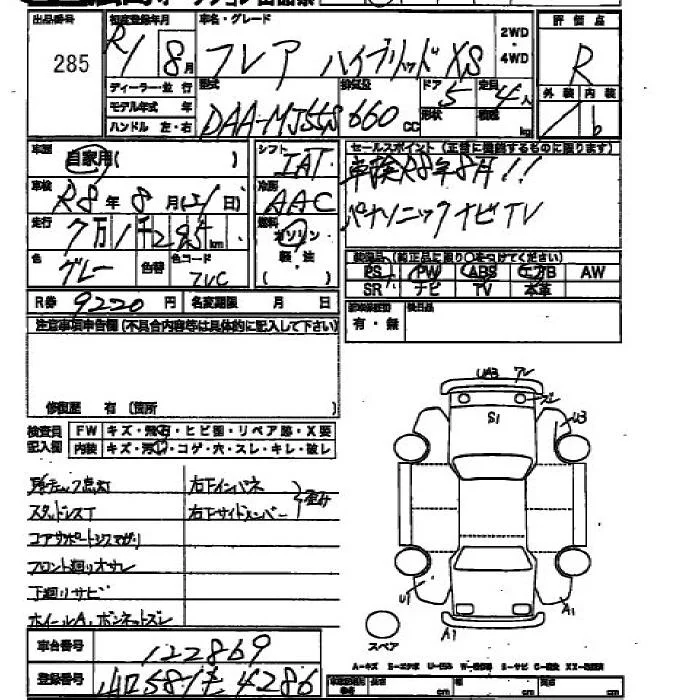 出品番号 初度登録年月 車名・グレード 2WD・4WD 評価点
285 R1 8月 フレア ハイブリッド XS R
ディーラー・並行 型式 排気量 ドア 5 定員 4人 外装 内装
モデル年式 年 DAA-MJ55S 660cc 形状 積載 kg b
ハンドル 左・右
車歴 自家用( ) シフト IAT セールスポイント(正確に記載するものに限ります)
車検 R8年8月(21日) 冷房 AAC 車検R8年8月!!
走行 7万1千285km 燃料 ガソリン・軽・油・( ) パナソニックナビTV
色 グレー 色替 色コード ZVC
PS PW ABS エアB AW
SR ナビ TV 本革
R券 9220円 名変期限 月 日 有・無 検印
注意事項申告欄(不具合内容等は具体的に記入して下さい)
修復歴 有(箇所
検査員記入欄 FW キズ・飛石・ヒビ割・リペア跡・X要
内装 キズ・汚れ・コゲ・穴・スレ・キレ・破レ
右下インパネ
スタッドレスT 右下サイドメンバー
コアサポートシタマガリ
フロント廻りオサレ
下廻りサビ
ホイールA、ボンネットズレ
車台番号 122869
登録番号 山口581 4286
UA3
S1
U3
U1
A1
A1
スペア
A-キズ
cm cm cm